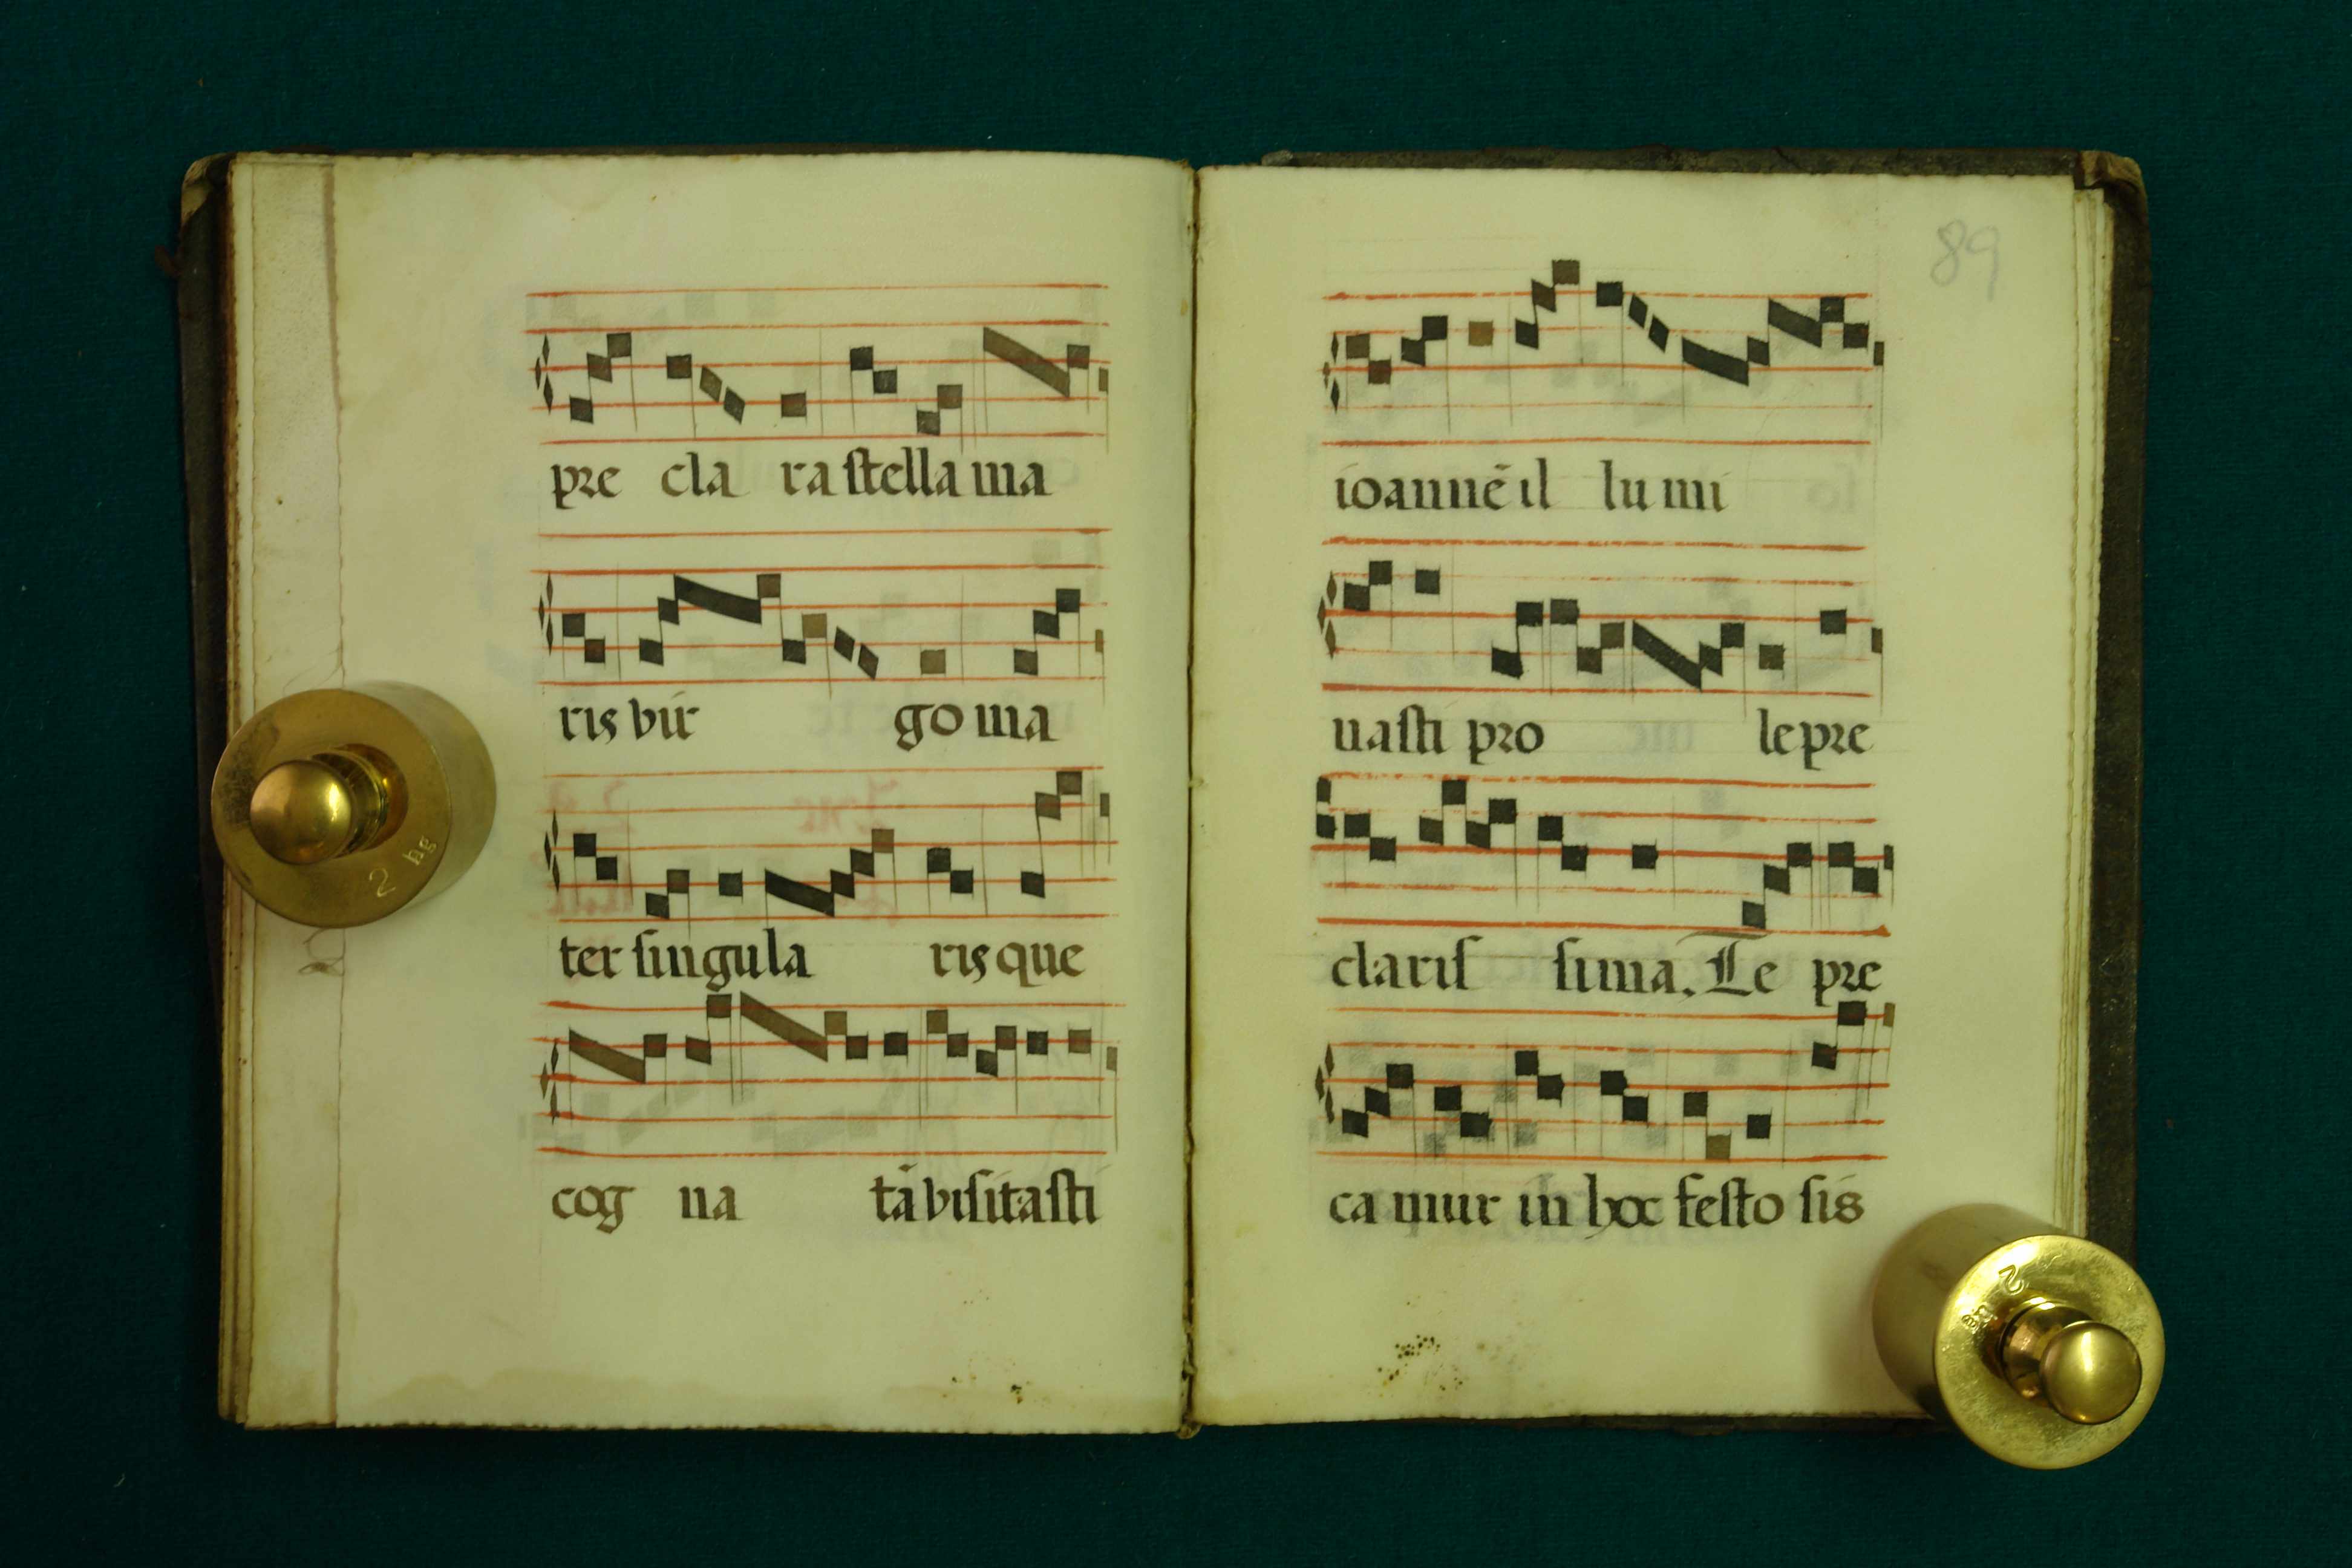 pre cla ra stella ma
ris vir go ma
ter singula ris que
cog na tā visitasti
89
ioannē il lu mi
nasti pro le pre
claris sima. Te pre
ca mur in hoc festo sis
2 hg
2 hg